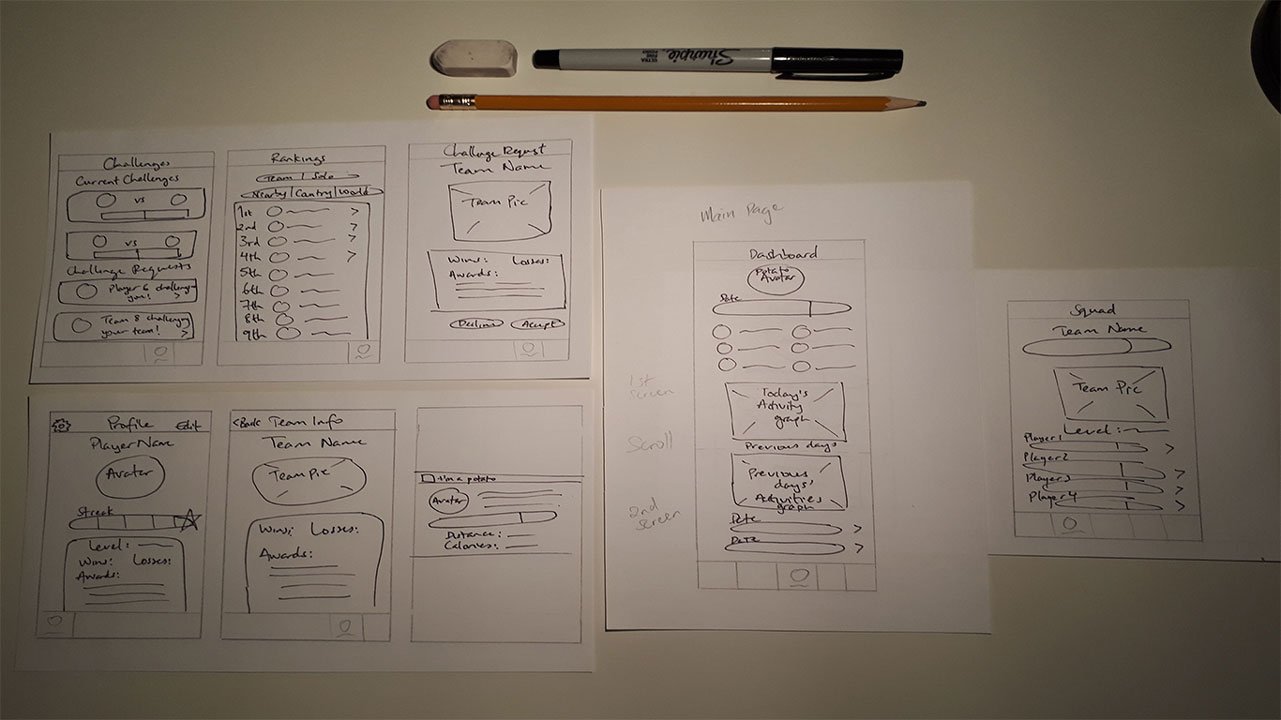 Sharpie
ULTRA
FINE
POINT
Challenges
Current Challenges
vs
vs
Challenge Requests
Player 6 challenges
you! >
Team 8 challenges
your team! >
Rankings
Team | Solo
Nearby | Country | World
1st >
2nd >
3rd >
4th >
5th
6th
7th
8th
9th
Challenge Request
Team Name
Team Pic
Wins: Losses:
Awards:
Decline Accept
Profile Edit
Player Name
Avatar
Streak
Level:
Wins: Losses:
Awards:
<Back Team Info
Team Name
Team Pic
Wins: Losses:
Awards:
I'm a potato
Avatar
Distance:
Calories:
Main Page
Dashboard
Potato
Avatar
Date
1st
screen
Today's
Activity
graph
Scroll
Previous days
Previous
days'
Activities
graph
2nd
screen
Date
>
Date
>
Squad
Team Name
Team Pic
Level:
Player1
>
Player2
>
Player3
>
Player4
>